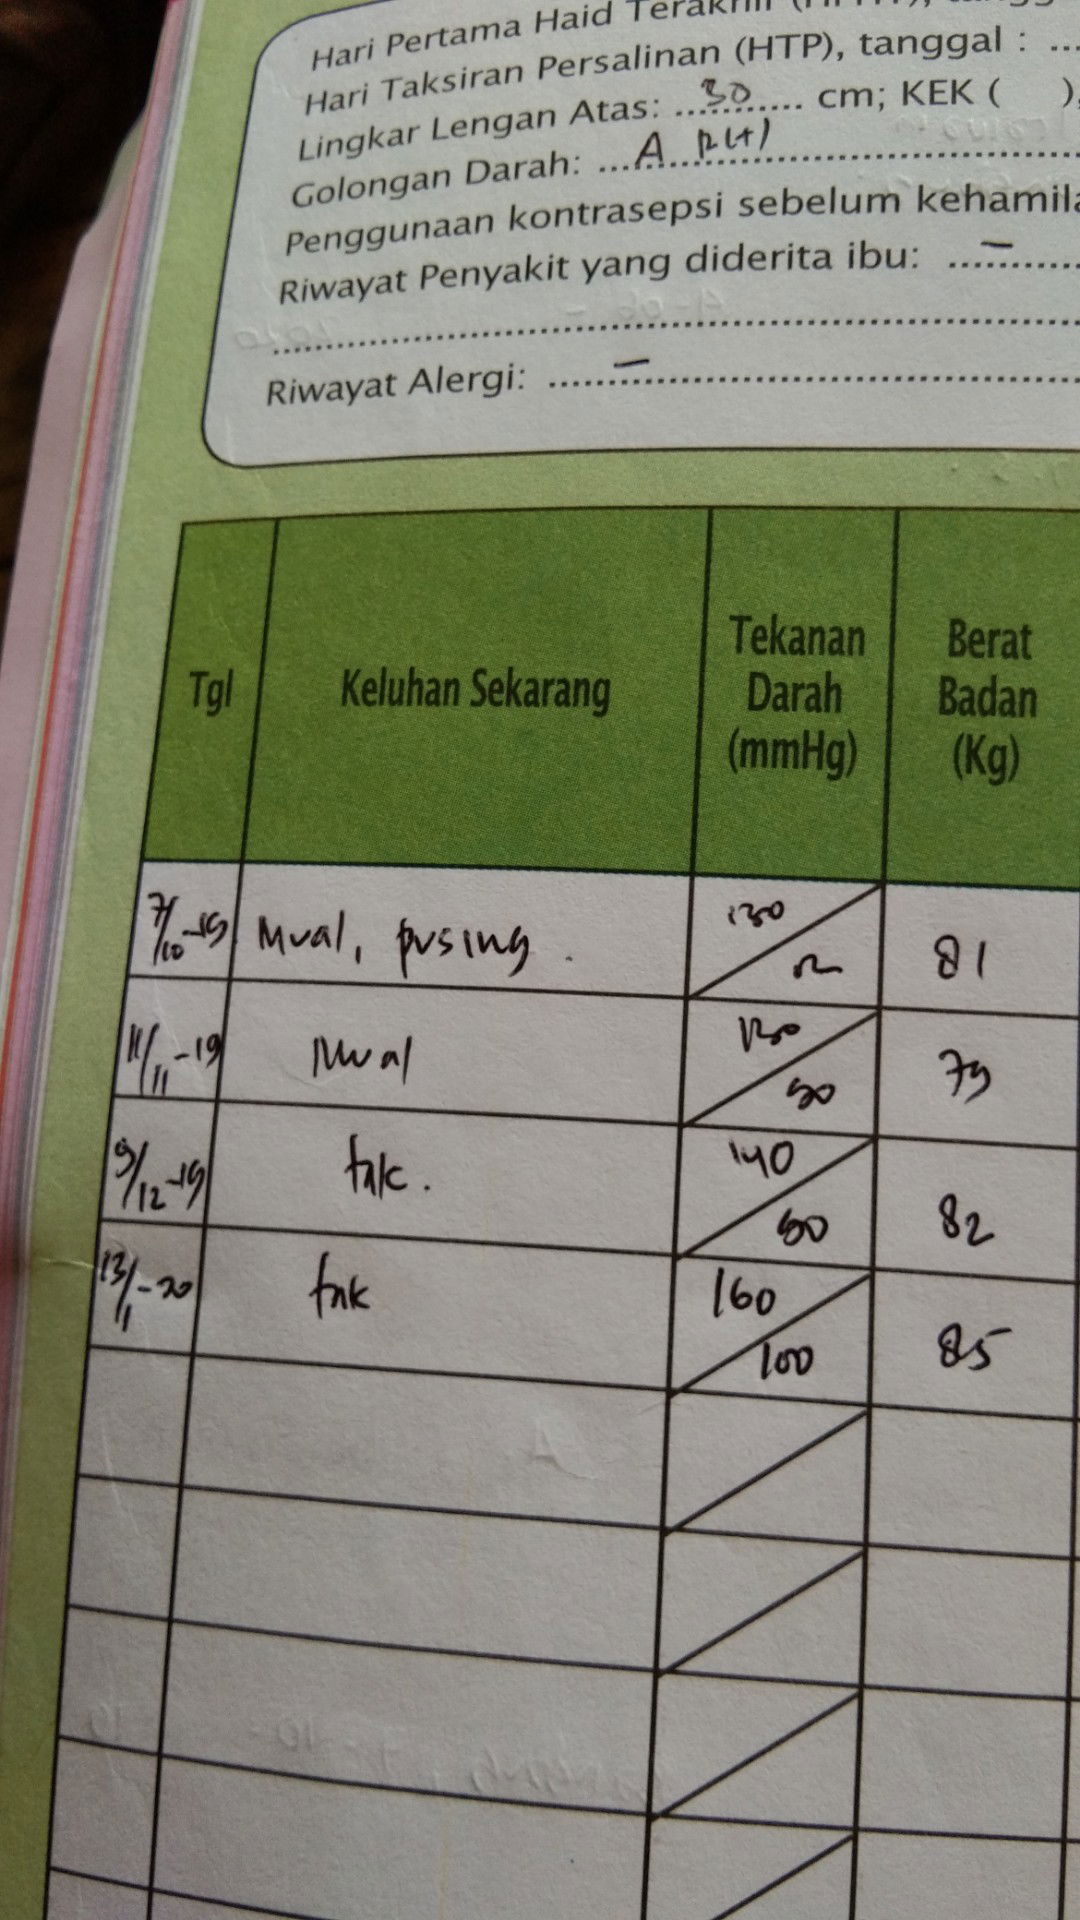 Hari Pertama Haid Terakhir
Hari Taksiran Persalinan (HTP), tanggal : ...
Lingkar Lengan Atas: ...30... cm; KEK ( ),
Golongan Darah: ...A R(+)...
Penggunaan kontrasepsi sebelum kehamila
Riwayat Penyakit yang diderita ibu: ...–...
Riwayat Alergi: ...–...
Tgl Keluhan Sekarang Tekanan Darah (mmHg) Berat Badan (Kg)
7/10-19 Mual, pusing. 130 81
11/11-19 Mual 130/80 79
9/12-19 tak. 140/80 82
13/1-20 tak 160/100 85